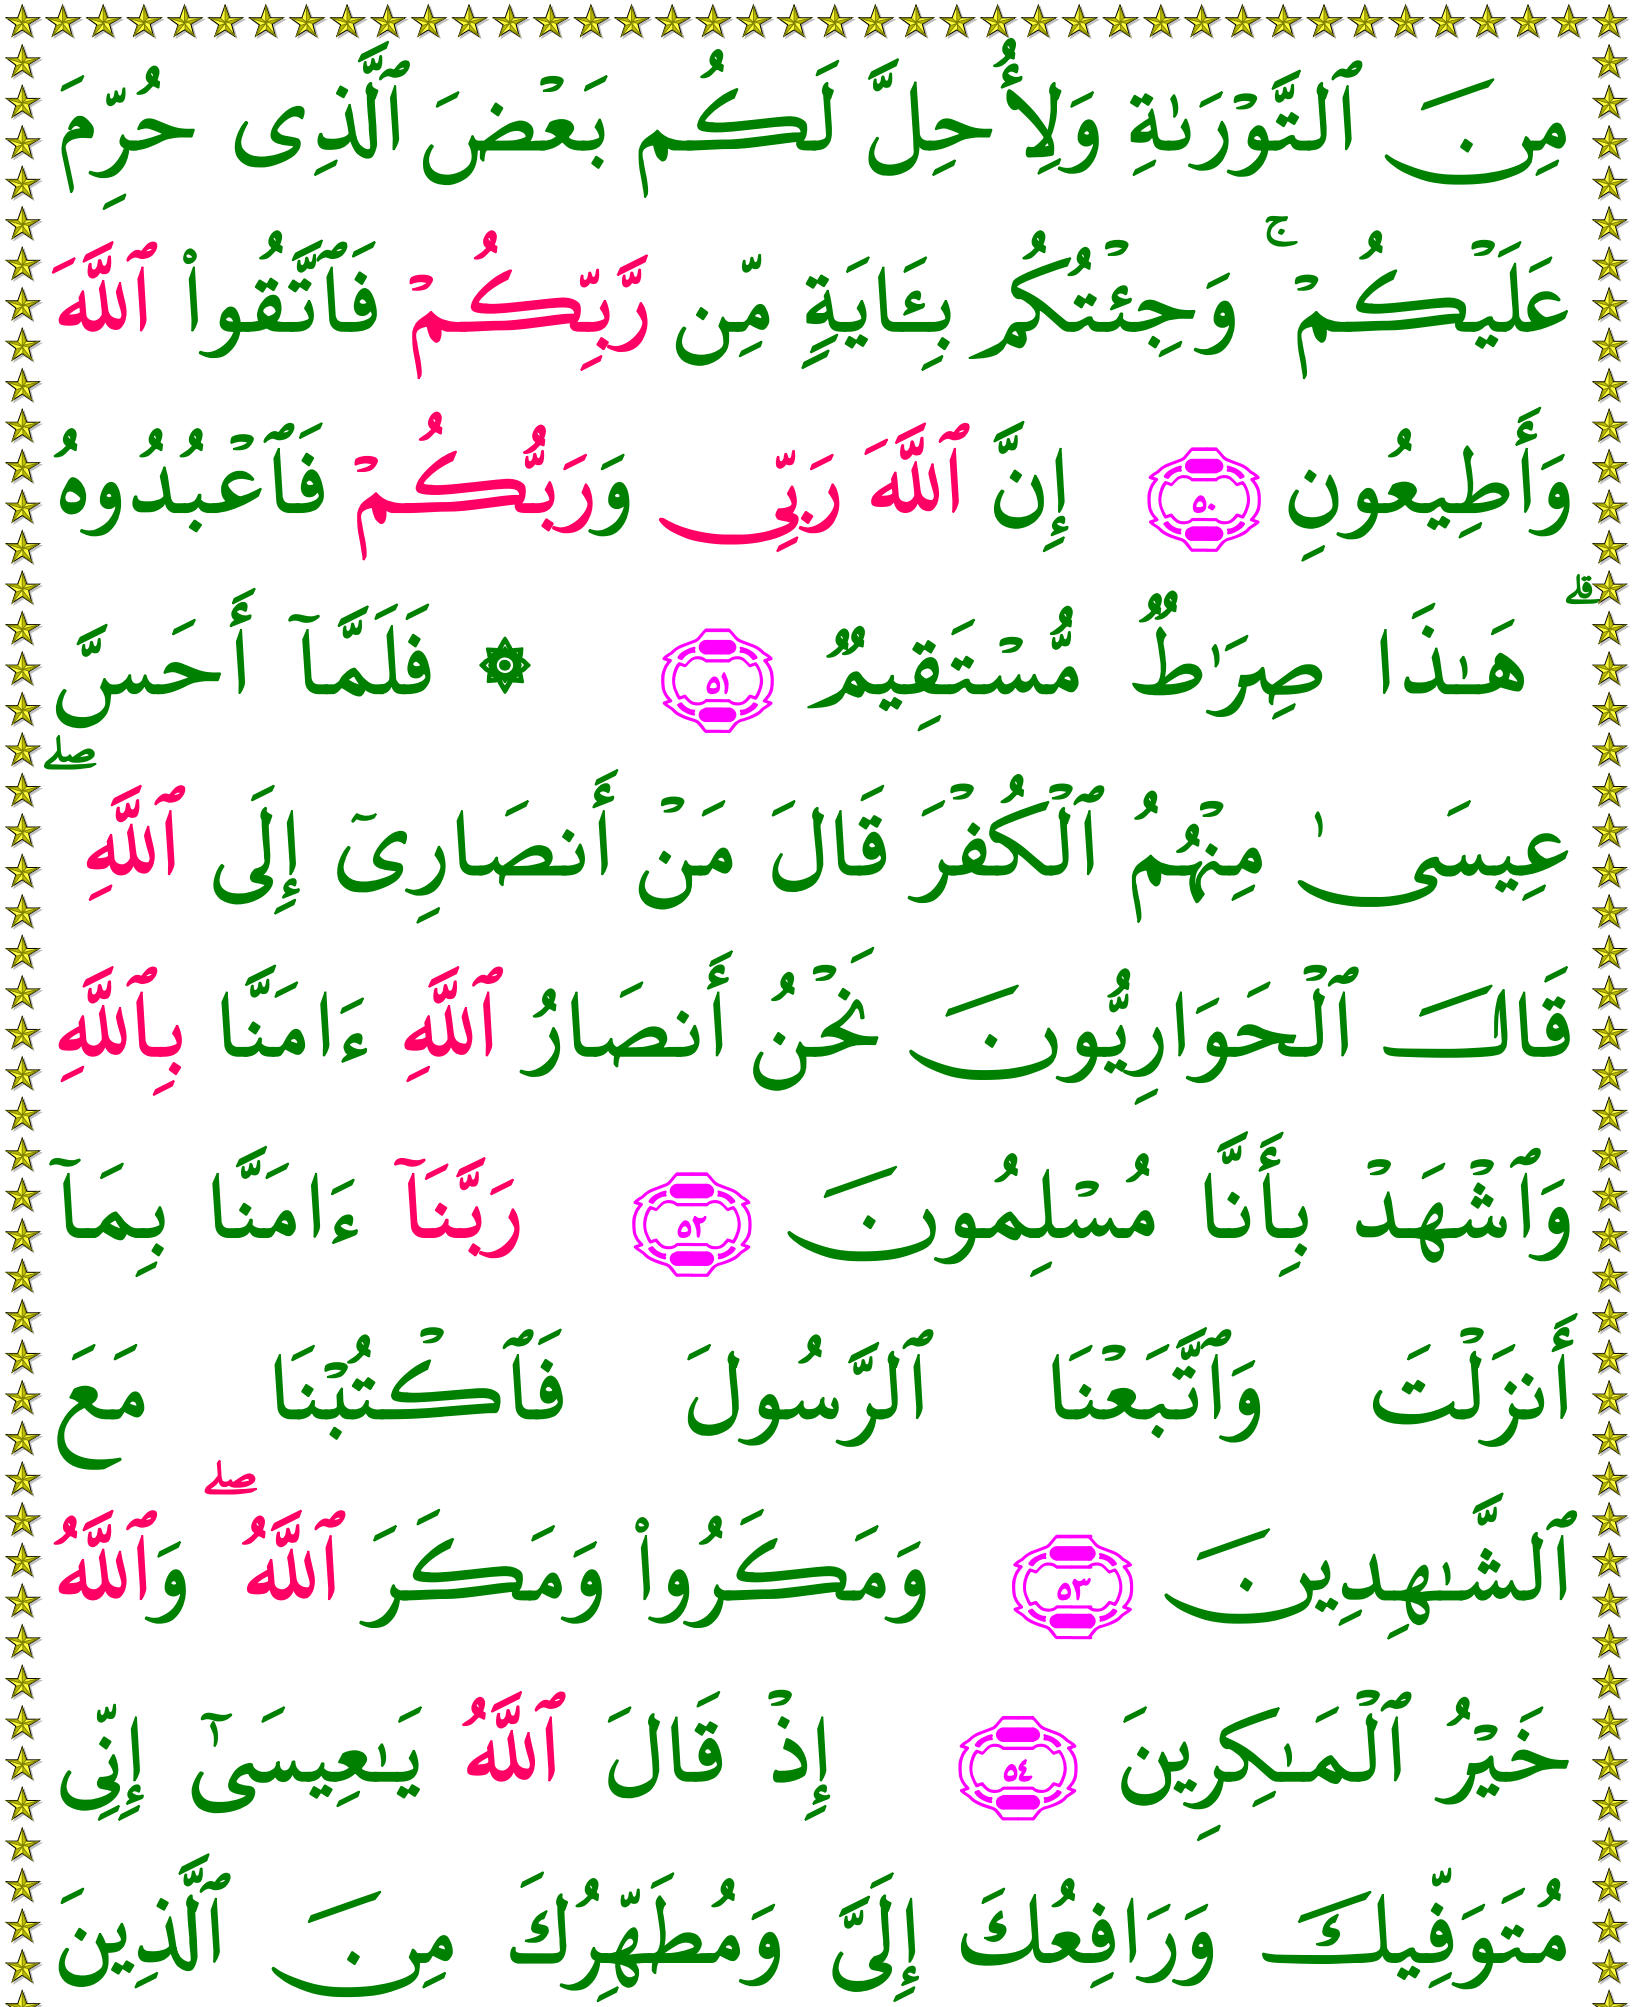 مِنَ ٱلتَّوْرَىٰةِ وَلِأُحِلَّ لَكُم بَعْضَ ٱلَّذِى حُرِّمَ
عَلَيْكُمْ ۚ وَجِئْتُكُم بِـَٔايَةٍ مِّن رَّبِّكُمْ فَٱتَّقُوا۟ ٱللَّهَ
وَأَطِيعُونِ ٥٠ إِنَّ ٱللَّهَ رَبِّى وَرَبُّكُمْ فَٱعْبُدُوهُ ۗ
هَـٰذَا صِرَٰطٌ مُّسْتَقِيمٌ ٥١ ۞ فَلَمَّآ أَحَسَّ
عِيسَىٰ مِنْهُمُ ٱلْكُفْرَ قَالَ مَنْ أَنصَارِىٓ إِلَى ٱللَّهِ ۖ
قَالَ ٱلْحَوَارِيُّونَ نَحْنُ أَنصَارُ ٱللَّهِ ءَامَنَّا بِٱللَّهِ
وَٱشْهَدْ بِأَنَّا مُسْلِمُونَ ٥٢ رَبَّنَآ ءَامَنَّا بِمَآ
أَنزَلْتَ وَٱتَّبَعْنَا ٱلرَّسُولَ فَٱكْتُبْنَا مَعَ
ٱلشَّـٰهِدِينَ ٥٣ وَمَكَرُوا۟ وَمَكَرَ ٱللَّهُ ۖ وَٱللَّهُ
خَيْرُ ٱلْمَـٰكِرِينَ ٥٤ إِذْ قَالَ ٱللَّهُ يَـٰعِيسَىٰٓ إِنِّى
مُتَوَفِّيكَ وَرَافِعُكَ إِلَىَّ وَمُطَهِّرُكَ مِنَ ٱلَّذِينَ